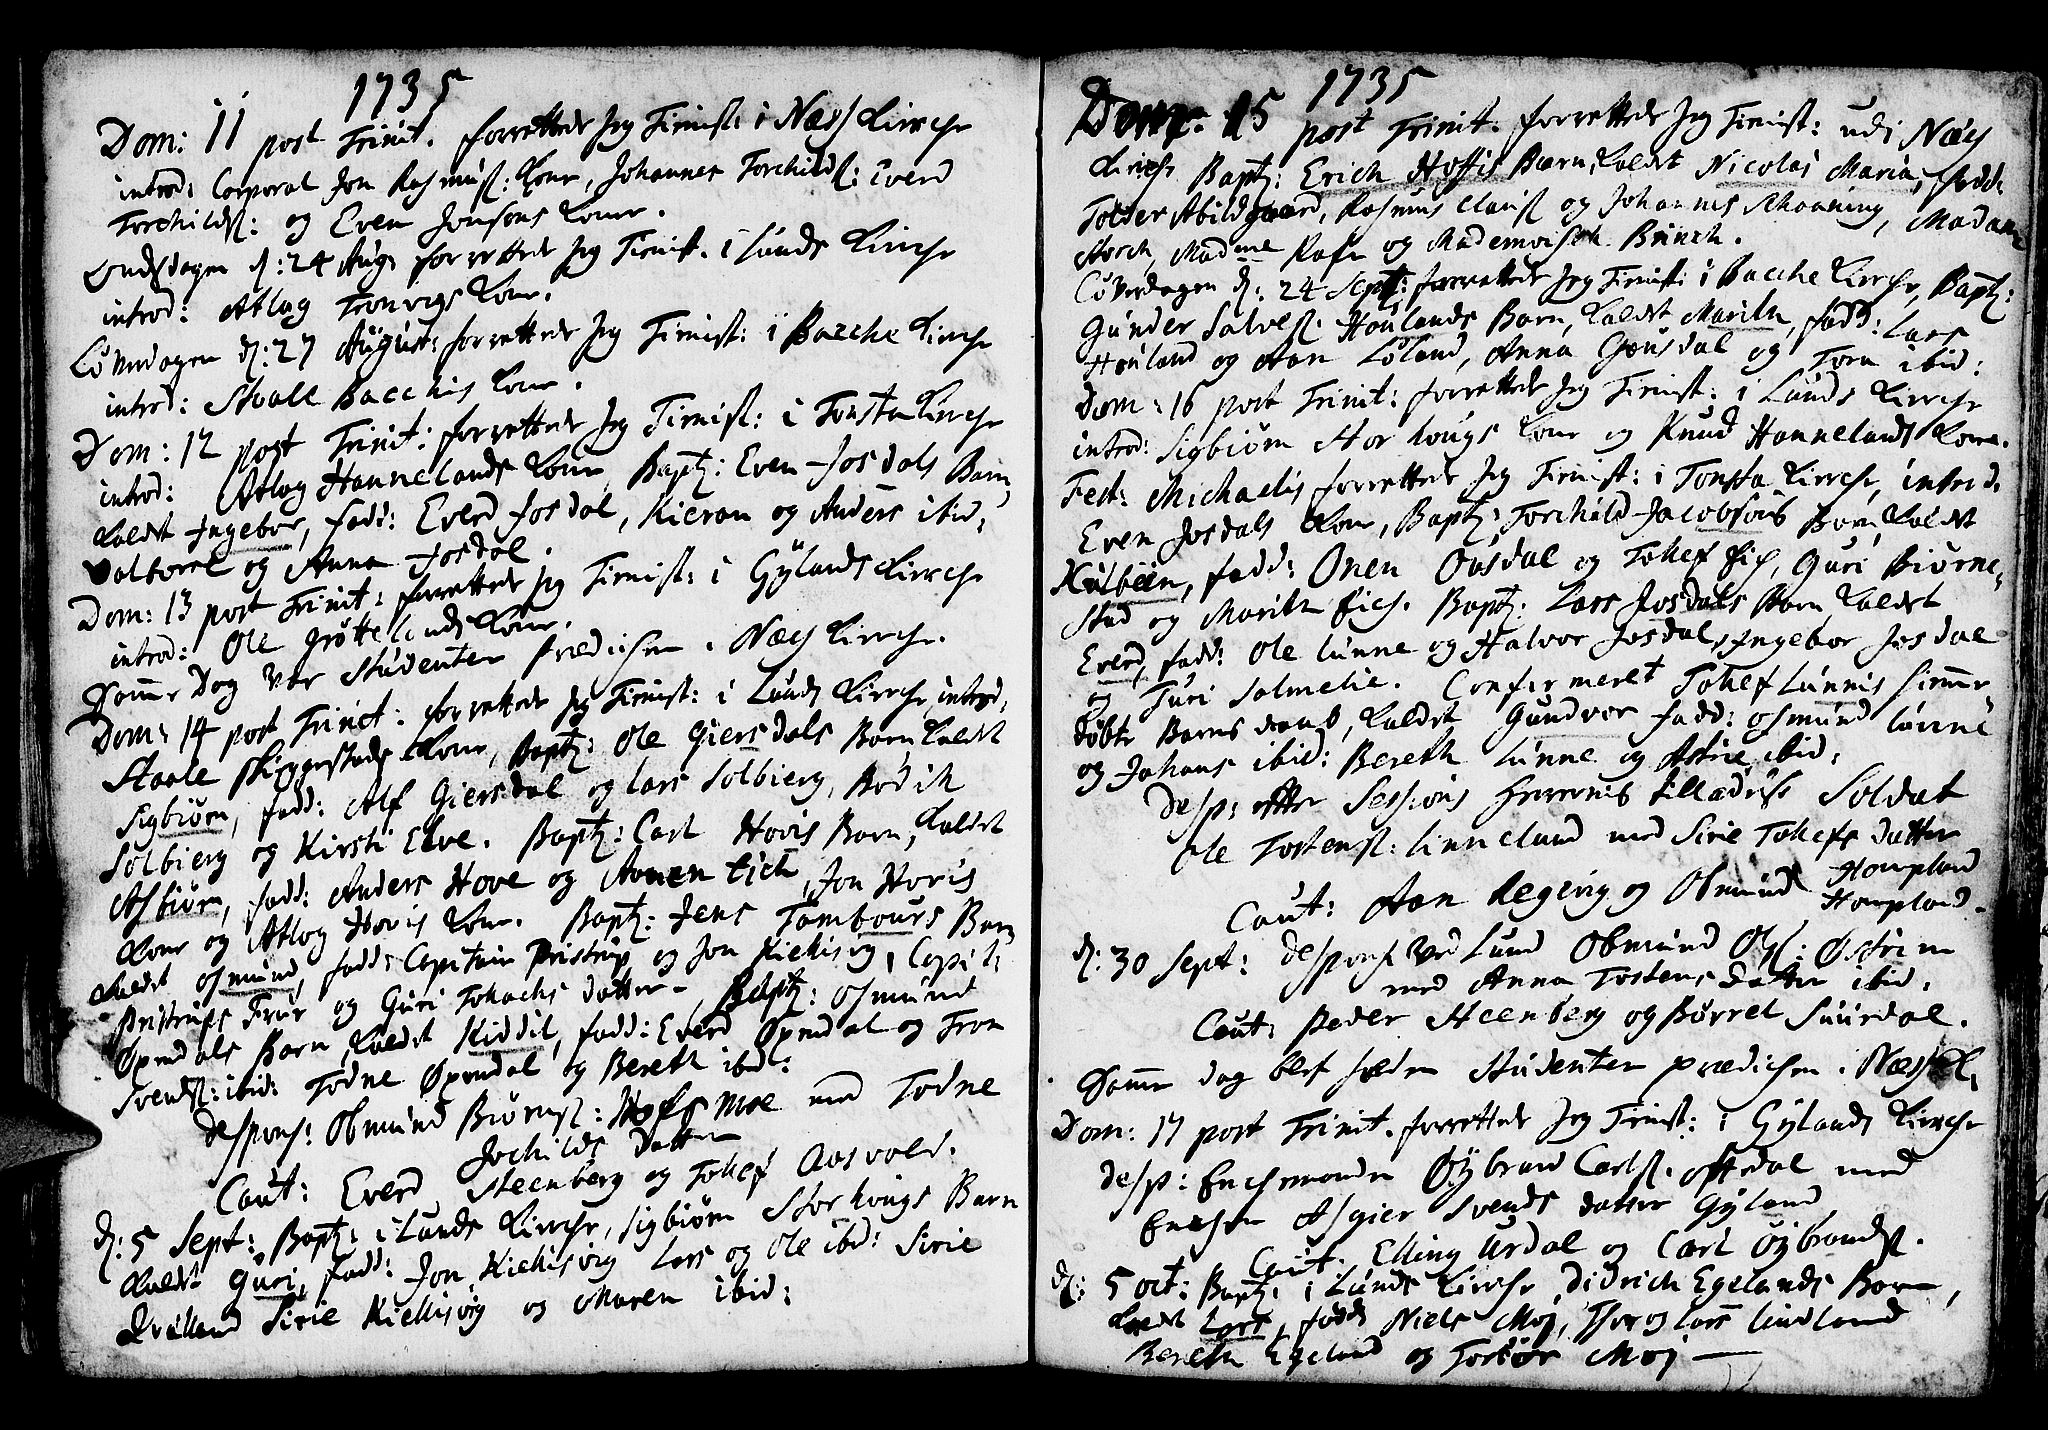 1735
Dom: 11 post Trinit. forrettede Jeg Tienist: i Næss Kirche
introd: Corporal Jon Rasmusß: Kone, Johannes Torchildß: Everd
Torchildß: og Even Jonsøns Kone.
Onsdagen d: 24 Aug: forrettede Jeg Tienist. i Lunds Kirche
introd: Atlag Tronvigs Kone.
Løverdagen d: 27 August: forrettede Jeg Tienist: i Bacche Kirche
introd: Staale Bacchis Kone.
Dom: 12 post Trinit: forrettede Jeg Tienist: i Tonsta Kirche
introd: Atlag Hannelands Kone, Bapt: Even Josdals Barn,
Kaldet Ingebor, fadd: Everd Josdal, Kieran og Anders ibid:
Valborel og Anna Josdal.
Dom: 13 post Trinit: forrettede Jeg Tienist: i Gylands Kirche
introd: Ole Grøttelunds Kone.
Samme Dag var Studenten Prædichen i Næss Kirche.
Dom: 14 post Trinit: forrettede Jeg Tienist: i Lunds Kirche, introd,
Staale Skiggestads Kone, Bapt: Ole Giersdals Barn Kaldet
Sigbiørn, fadd: Alf Giersdal og Lars Solbierg, Bodil
Solbierg og Kirsti Elve. Bapt: Carl Hovis Barn, Kaldet
Asbiørn, fadd: Anders Hove og Aanen Eich, Jon Hovis
Kone og Atlag Hovis Kone. Bapt: Jens Tambours Barn
Kaldet Osmund, fadd: Capitain Pristrup og Jon Kiellisvig, Capit:
Pristrups Frue og Guri Tollachs datter. Bapt: Osmund
Øpsdals Barn, Kaldet Kiddil, fadd: Everd Øpsdal og Tron
Svendß: ibid: Todne Øpsdal og Bereth ibid:
Despons: Obmund Biørnß: Hofsmoe med Todne
Jochilds datter
Caut: Everd Steenberg og Tollef Aasvald.
d: 5 Sept: Bapt: i Lunds Kirche, Sigbiørn Storhougs Barn
Kaldet Guri, fadd: Jon Kiellisvig Lars og Ole ibid: Sirie
Qvilland Sirie Kiellisvig og Maren ibid:
1735
Dom: 15 post Trinit. forrettede Jeg Tienist: udi Næss
Kirche Bapt: Erich Hoffis Barn, Kaldet Nicolai Maria, fadd:
Tolder Abildgaard, Rasmus Clausß og Johannes Schaaning, Madame
Storch, Madme Rafn og Mademoiselle Brinch.
Løverdagen d: 24 Sept: forrettede Jeg Tienist: i Bacche Kirche, Bapt:
Gunder Salvesß. Houlands Barn, Kaldet Marith, fadd: Lars
Houland og Aan Løland, Anna Giønsdal og Torn ibid:
Dom: 16 post Trinit: forrettede Jeg Tienist: i Lunds Kirche
introd: Sigbiørn Storhougs Kone og Knud Hannelands Kone.
Fest: Michaelis forrettede Jeg Tienist: i Tonsta Kirche, introd:
Even Josdals Kone, Bapt: Torchild Jacobsøns Barn, Kaldet
Kulbein, fadd: Onen Ousdal og Tollef Fich, Guri Biørne-
stad og Marith Fich. Bapt: Lars Josdals Barn Kaldet
Everd, fadd: Ole Lunne og Halvor Josdal, Ingebor Josdal
og Turi Salmelie. Confermeret Tollef Lunnis hiemme-
døbte Barns daab, Kaldet Gundvor fadd: Osmund Lunne
og Johans ibid: Bereth Lunne og Astrie ibid:
Desp: efter Sessions Herrernis tilladelse Soldat
Ole Tostensß: Linneland med Sirie Tollefs datter
Hompland
Caut: Aan Regevig og Obmund Hompland.
d: 30 Sept: Despons: ved Lund Obmund Olß: Østrem
med Anna Tostens Datter ibid:
Caut: Peder Steenberg og Børrel Suurdal.
Samme dag blef holden Studenten prædichen i Næss K.
Dom: 17 post Trinit. forrettede Jeg Tienist: i Gylands Kirche
Desp: Enchemanden Øybrand Carlß. Østdal med
Enchen Asgier Svends datter Gyland
Caut: Elling Urdal og Carl Øybrandß.
d: 5 Oct: Bapt: i Lunds Kirche, Didrich Egelands Barn,
Kaldet Lars, fadd: Niels Moj, Thor og Lars Lindland
Bereth Egeland og Torbor Moj